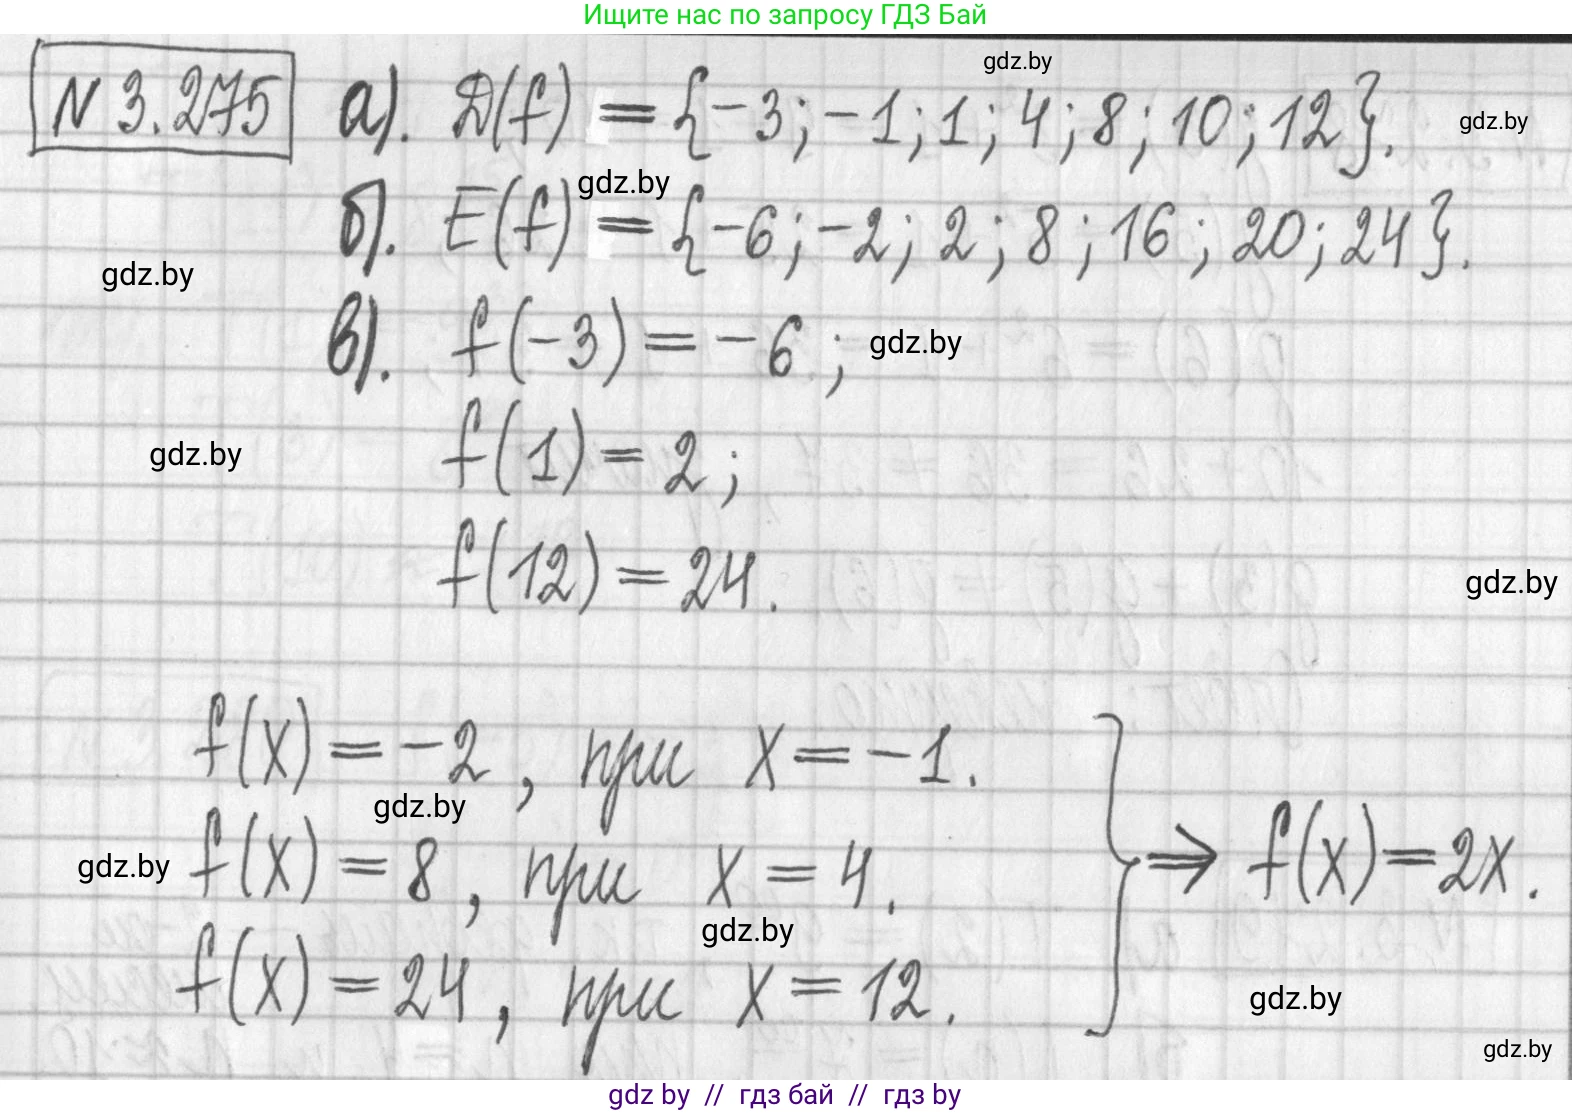 Ищите нас по запросу ГДЗ Бай
gdz.by
N 3.275 а). D(f) = {-3; -1; 1; 4; 8; 10; 12}.
gdz.by
gdz.by
б). E(f) = {-6; -2; 2; 8; 16; 20; 24}.
gdz.by
в). f(-3) = -6;
gdz.by
f(1) = 2;
gdz.by
f(12) = 24.
gdz.by
f(x) = -2, при x = -1.
gdz.by
f(x) = 8, при x = 4. } ⇒ f(x) = 2x.
gdz.by
gdz.by
f(x) = 24, при x = 12.
gdz.by
gdz.by
gdz by // гдз бай // гдз by